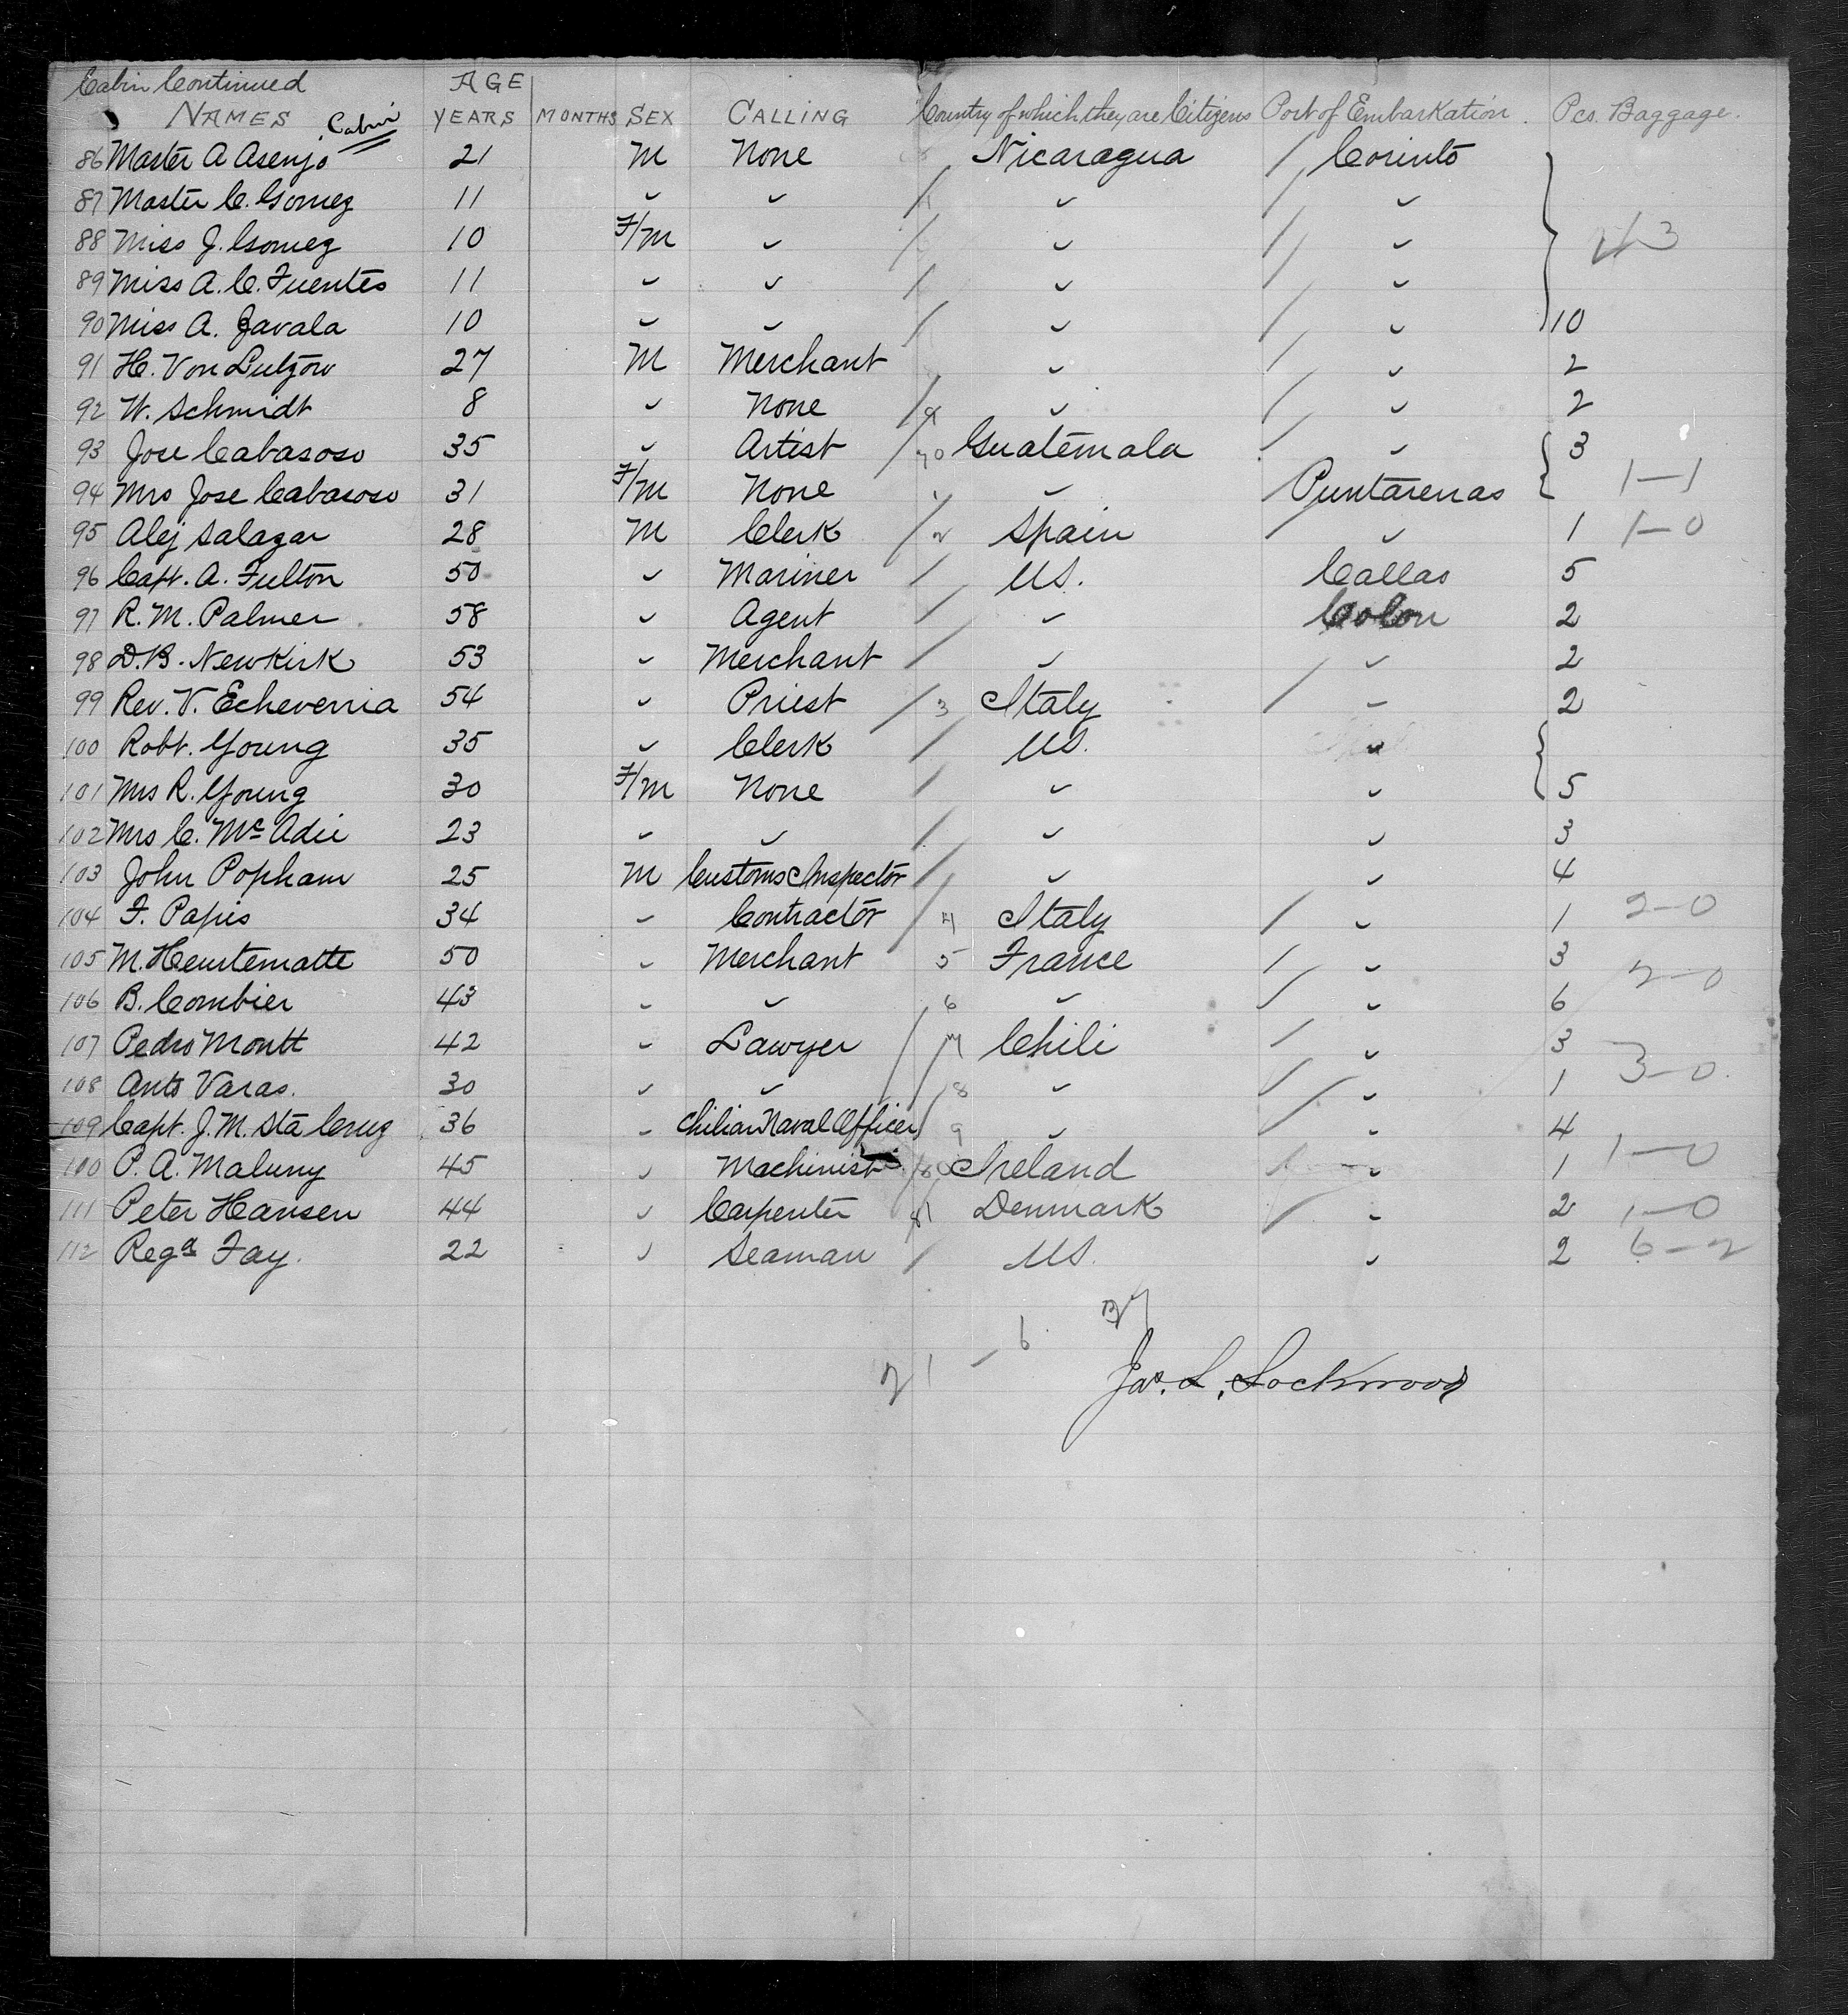 Cabin Continued AGE
NAMES Cabin YEARS MONTHS SEX CALLING Country of which they are Citizens Port of Embarkation. Pcs. Baggage.
86 Master A Asenjo 21 M None Nicaragua / Corinto
87 Master C. Gomez 11 " " / " / "
88 Miss J. Gomez 10 F/M " / " / "
89 Miss A. C. Fuentes 11 " " / " / "
90 Miss A. Zavala 10 " " / " / " 10
91 H. Von Lutzow 27 M Merchant " / " 2
92 W. Schmidt 8 " None / 9 " / " 2
93 Jose Cabasoso 35 " Artist / 70 Guatemala / " 3
94 Mrs Jose Cabasoso 31 F/M None 1 " / Puntarenas 1-1
95 Alej Salazar 28 M Clerk / 2 Spain / " 1 1-0
96 Capt. A. Fulton 50 " Mariner / US. Callao 5
97 R. M. Palmer 58 " Agent / " Colon 2
98 D. B. Newkirk 53 " Merchant / " / " 2
99 Rev. V. Echeverria 54 " Priest / 3 Italy / " 2
100 Robt. Young 35 " Clerk / US. "
101 Mrs R. Young 30 F/M None / " " 5
102 Mrs C. McAdie 23 " " / " " 3
103 John Popham 25 M Customs Inspector / " " 4
104 F. Papis 34 " Contractor / 4 Italy / " 1 2-0
105 M. Heurtematte 50 " Merchant 5 France / " 3 2-0
106 B. Combier 43 " " 6 " / " 6
107 Pedro Montt 42 " Lawyer / 7 Chili / " 3
108 Anto Varas. 30 " " / 8 " / " 1 3-0
109 Capt. J. M. Sta Cruz 36 " Chilian Naval Officer / 9 " / " 4
100 P. A. Maluny 45 " Machinist / 80 Ireland " 1 1-0
111 Peter Hansen 44 " Carpenter 81 Denmark / " 2 1-0
112 Regd Fay. 22 " Seaman / US. " 2 6-2
27
21 - 6
Jas. L. Lockwood